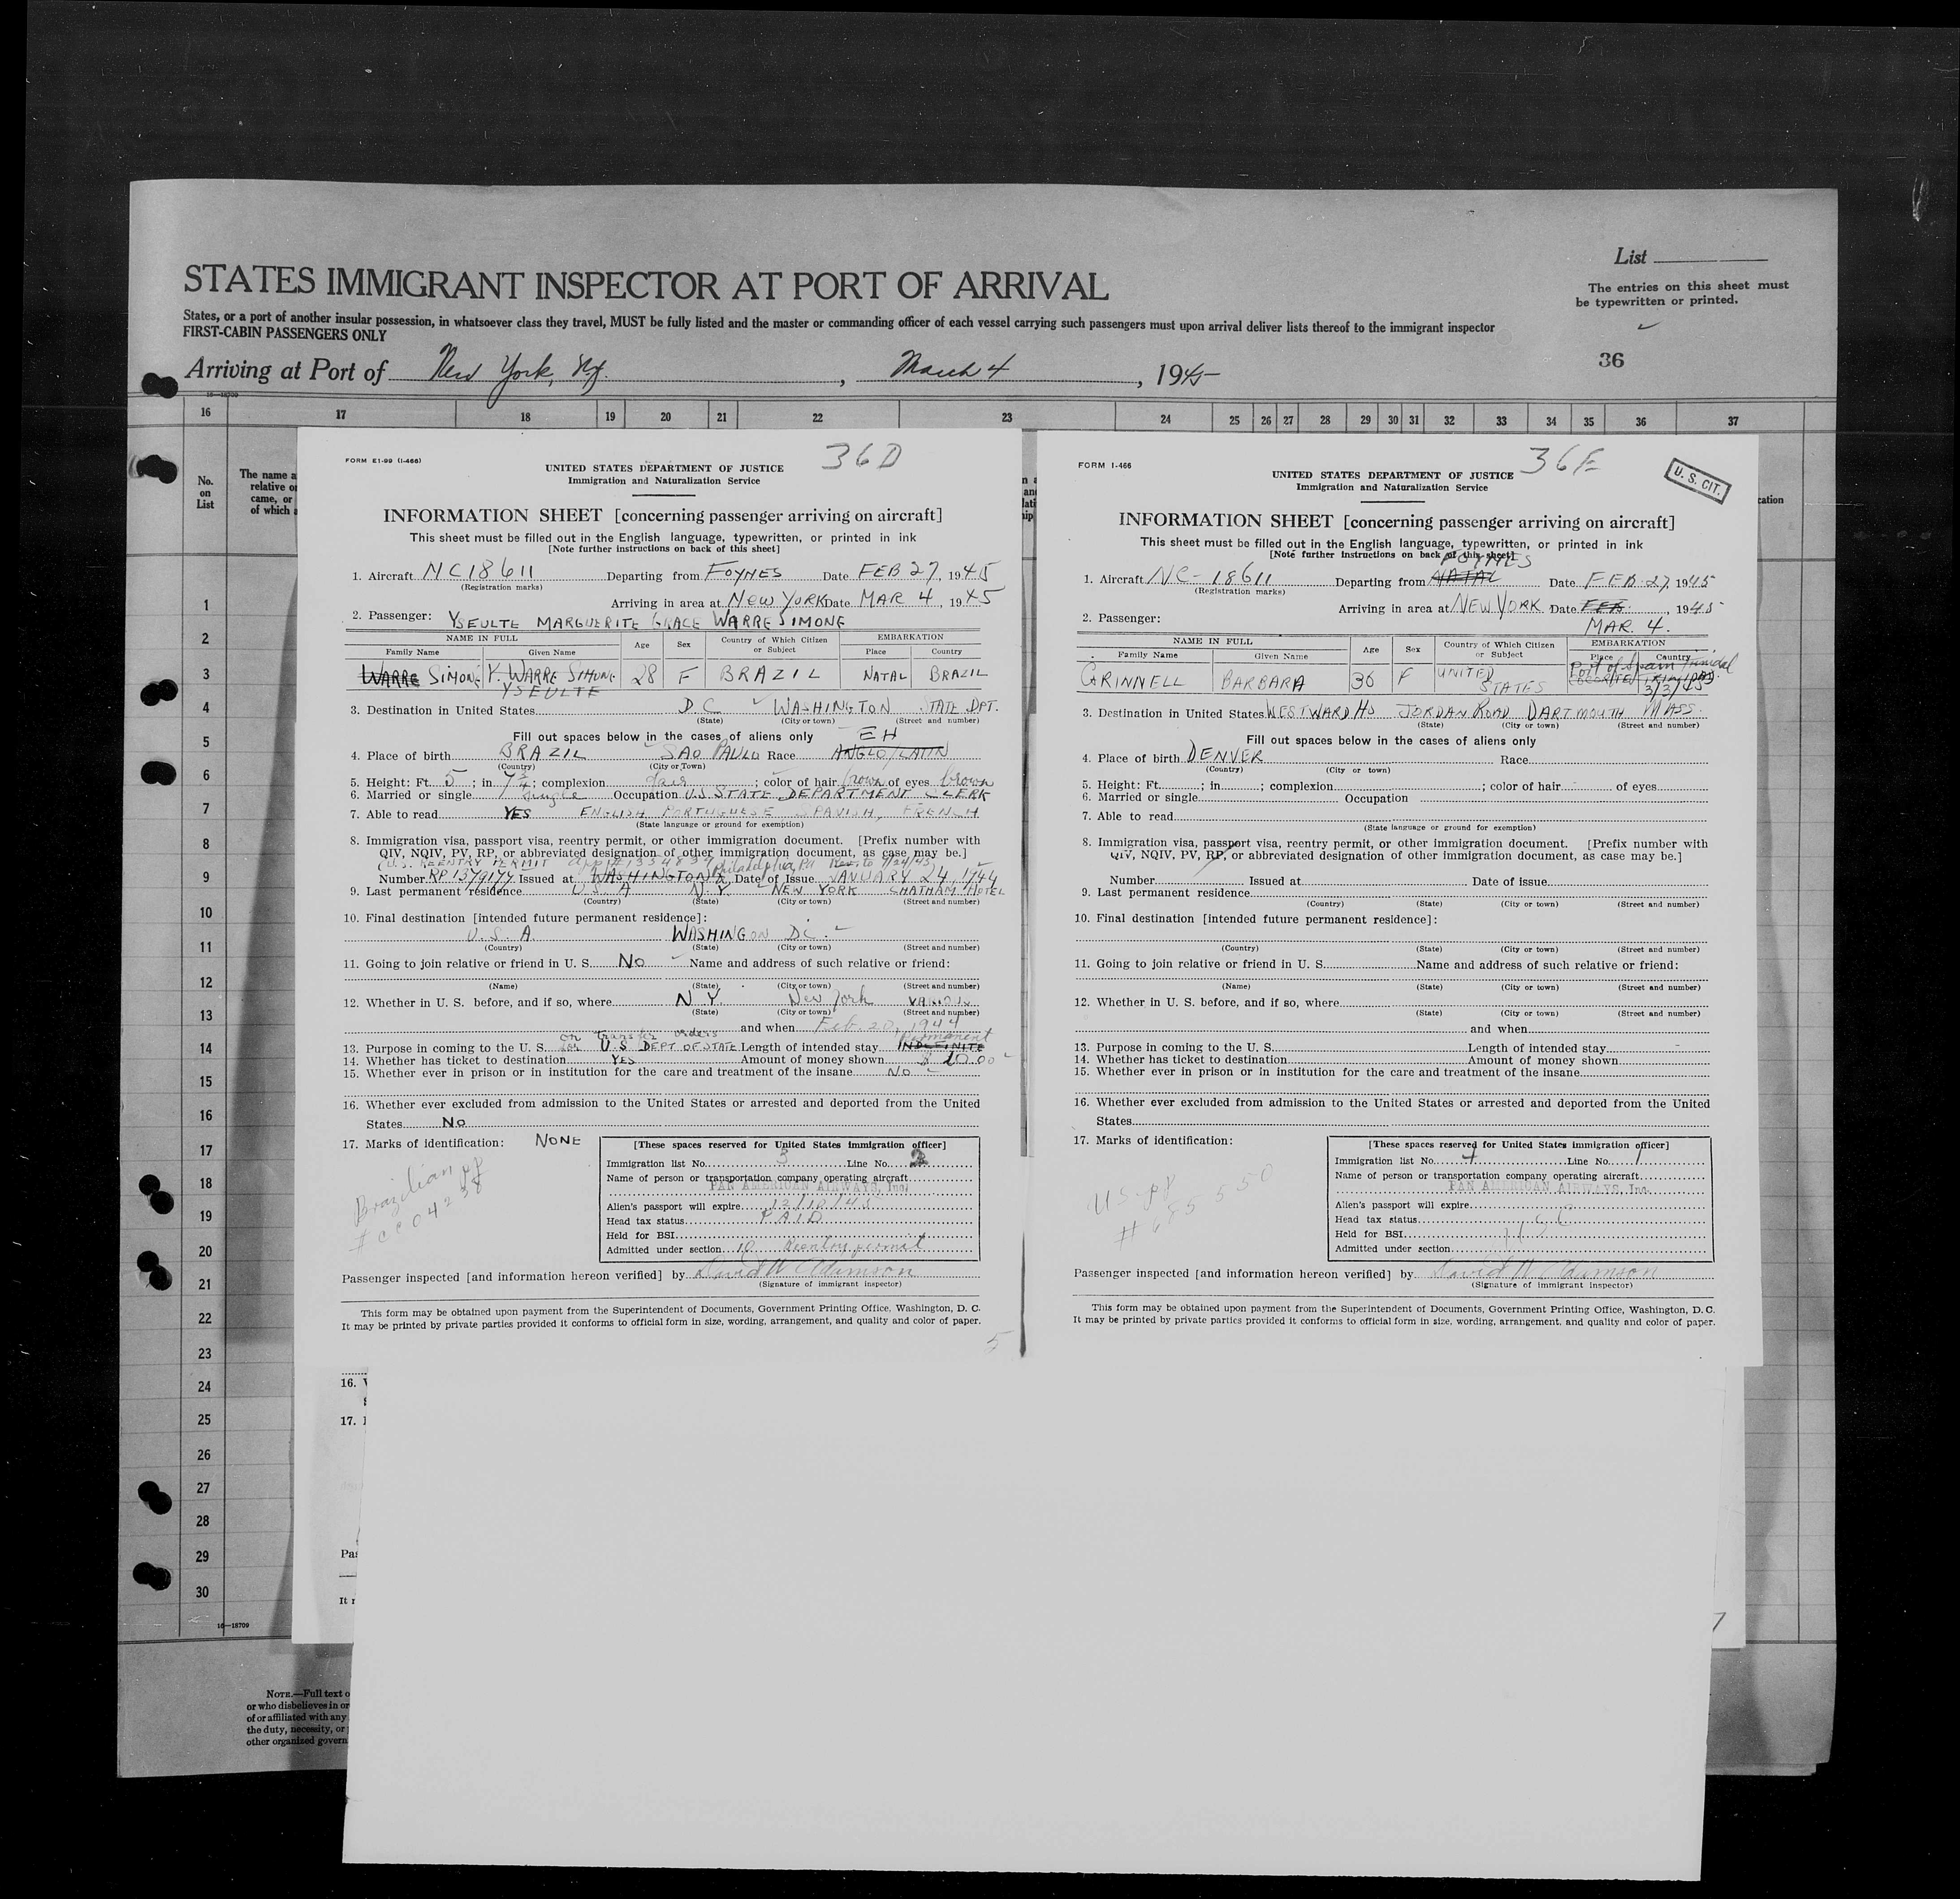 List
The entries on this sheet must
be typewritten or printed.
STATES IMMIGRANT INSPECTOR AT PORT OF ARRIVAL
States, or a port of another insular possession, in whatsoever class they travel, MUST be fully listed and the master or commanding officer of each vessel carrying such passengers must upon arrival deliver lists thereof to the immigrant inspector
FIRST-CABIN PASSENGERS ONLY
36
Arriving at Port of New York, Ny. , March 4 , 1945
16 17 18 19 20 21 22 23 24 25 26 27 28 29 30 31 32 33 34 35 36 37
No.
on
List
The name a
relative o
came, or
of which a
1
2
3
4
5
6
7
8
9
10
11
12
13
14
15
16
17
18
19
20
21
22
23
24
25
26
27
28
29
30
16—18709
NOTE.—Full text o
or who disbelieves in or
of or affiliated with any
the duty, necessity, or
other organized govern
FORM E1-99 (I-466)
36D
UNITED STATES DEPARTMENT OF JUSTICE
Immigration and Naturalization Service
INFORMATION SHEET [concerning passenger arriving on aircraft]
This sheet must be filled out in the English language, typewritten, or printed in ink
[Note further instructions on back of this sheet]
1. Aircraft NC18611 Departing from FOYNES Date FEB 27, 1945
(Registration marks)
Arriving in area at NEW YORK Date MAR 4, 1945
2. Passenger: YSEULTE MARGUERITE GRACE WARRE SIMONE
NAME IN FULL Age Sex Country of Which Citizen or Subject EMBARKATION
Family Name Given Name Place Country
WARRE SIMONE Y. WARRE SIMONE 28 F BRAZIL NATAL BRAZIL
YSEULTE
3. Destination in United States D.C. WASHINGTON STATE DPT.
(State) (City or town) (Street and number)
Fill out spaces below in the cases of aliens only EH
4. Place of birth BRAZIL SAO PAULO Race ANGLO/LATIN
(Country) (City or Town)
5. Height: Ft. 5; in 7½; complexion fair; color of hair brown of eyes brown
6. Married or single single Occupation U.S. STATE DEPARTMENT CLERK
7. Able to read YES ENGLISH PORTUGUESE SPANISH, FRENCH
(State language or ground for exemption)
8. Immigration visa, passport visa, reentry permit, or other immigration document. [Prefix number with
QIV, NQIV, PV, RP, or abbreviated designation of other immigration document, as case may be.]
(U.S. REENTRY PERMIT Philadelphia, Pa
Number RP 1379177 Issued at WASHINGTON Date of Issue JANUARY 24, 1944
9. Last permanent residence U.S.A N.Y. NEW YORK CHATHAM HOTEL
(Country) (State) (City or town) (Street and number)
10. Final destination [intended future permanent residence]:
U.S.A. WASHINGON D.C.
(Country) (State) (City or town) (Street and number)
11. Going to join relative or friend in U. S. NO Name and address of such relative or friend:
(Name) (State) (City or town) (Street and number)
12. Whether in U. S. before, and if so, where N.Y. New York VARIOUS
(State) (City or town) (Street and number)
and when Feb. 20, 1944
on transfer orders permanent
13. Purpose in coming to the U. S. for U.S DEPT OF STATE Length of intended stay INDEFINITE
14. Whether has ticket to destination YES Amount of money shown $ 10.00
15. Whether ever in prison or in institution for the care and treatment of the insane NO
16. Whether ever excluded from admission to the United States or arrested and deported from the United
States NO
17. Marks of identification: NONE
Brazilian pp
[These spaces reserved for United States immigration officer]
Immigration list No. 3 Line No. 2
Name of person or transportation company operating aircraft
PAN AMERICAN AIRWAYS, Inc.
Alien's passport will expire 12/10/45
Head tax status PAID
Held for BSI
Admitted under section 10 Reentry permit
Passenger inspected [and information hereon verified] by David W Adamson
(Signature of immigrant inspector)
This form may be obtained upon payment from the Superintendent of Documents, Government Printing Office, Washington, D. C.
It may be printed by private parties provided it conforms to official form in size, wording, arrangement, and quality and color of paper.
5
FORM I-466
36E
U. S. CIT.
UNITED STATES DEPARTMENT OF JUSTICE
Immigration and Naturalization Service
INFORMATION SHEET [concerning passenger arriving on aircraft]
This sheet must be filled out in the English language, typewritten, or printed in ink
[Note further instructions on back of this sheet]
FOYNES
1. Aircraft NC-18611 Departing from NATAL Date FEB-27, 1945
(Registration marks)
Arriving in area at NEW YORK Date FEB. , 1945
2. Passenger: MAR. 4.
NAME IN FULL Age Sex Country of Which Citizen or Subject EMBARKATION
Family Name Given Name Place Country
Port of Spain Trinidad
GRINNELL BARBARA 36 F UNITED STATES TRINIDAD
3/3/45
3. Destination in United States WESTWARD HO JORDAN ROAD DARTMOUTH MASS.
(State) (City or town) (Street and number)
Fill out spaces below in the cases of aliens only
4. Place of birth DENVER Race
(Country) (City or town)
5. Height: Ft. ; in ; complexion ; color of hair of eyes
6. Married or single Occupation
7. Able to read
(State language or ground for exemption)
8. Immigration visa, passport visa, reentry permit, or other immigration document. [Prefix number with
QIV, NQIV, PV, RP, or abbreviated designation of other immigration document, as case may be.]
Number Issued at Date of issue
9. Last permanent residence
(Country) (State) (City or town) (Street and number)
10. Final destination [intended future permanent residence]:
(Country) (State) (City or town) (Street and number)
11. Going to join relative or friend in U. S. Name and address of such relative or friend:
(Name) (State) (City or town) (Street and number)
12. Whether in U. S. before, and if so, where
(State) (City or town) (Street and number)
and when
13. Purpose in coming to the U. S. Length of intended stay
14. Whether has ticket to destination Amount of money shown
15. Whether ever in prison or in institution for the care and treatment of the insane
16. Whether ever excluded from admission to the United States or arrested and deported from the United
States
17. Marks of identification:
US pp
# 685550
[These spaces reserved for United States immigration officer]
Immigration list No. 4 Line No. 1
Name of person or transportation company operating aircraft
PAN AMERICAN AIRWAYS, Inc.
Alien's passport will expire
Head tax status
Held for BSI USC
Admitted under section
Passenger inspected [and information hereon verified] by David W Adamson
(Signature of immigrant inspector)
This form may be obtained upon payment from the Superintendent of Documents, Government Printing Office, Washington, D. C.
It may be printed by private parties provided it conforms to official form in size, wording, arrangement, and quality and color of paper.
16.
17.
Pas
It r
7